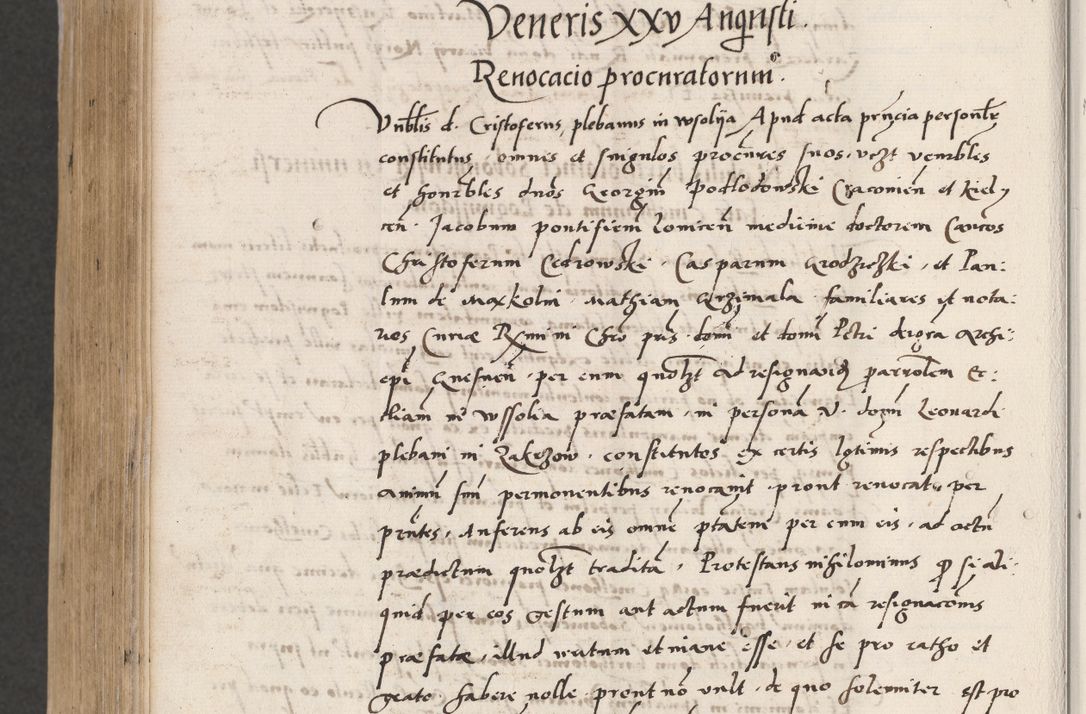 Veneris XXV Augusti.
Renocacio procuratorum.
Vnblis d. Cristoferus, plebanus in wsolija Apud acta pñcia personlr
constitutus, omnes et singulos procures suos, vczt venrbles
et honrbles dnos Georgiũ Podlodowski Cracovieñ et Kiely
ceñ. Jacobum pontifiem lomiceñ medicine doctorem Cancos
Christoferum Cedrowski, Casparum Grodziczki, et Pau:
lum de Moxkolin, Mathiam Grzimala familiares et nota:
rios Curiæ Rzmi in Chro pris dom̃ et dom̃ Petri dei gra Archi:
epi Gnesneñ, per eum quolzt ad resignandũ parrolem Ec:
cliam in Wssolia præfatam, in personã V. dom̃ Leonardi
plebani in Zakrzow, constitutos, Ex certis lgtimis respectibus
animũ suũ permonentibus renocanit, pront renocat, per
prñtes, Auferens ab eis omnẽ ptatem per eum eis, ad actũ
prædictum quolzt traditã, Protestans nihilominus q̃ si ali:
quid per eos gestum aut actum fuerit in cã resignacõnis
præfatæ, illud irritum et inane esse, et se pro ratho et
grato habere nolle, pront nõ vult, de quo solemniter est pro